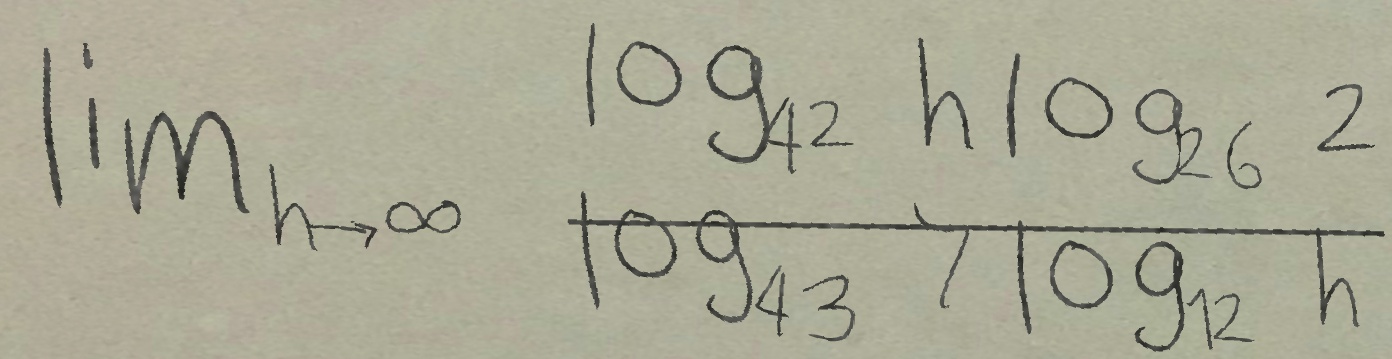 lim_{h→∞} \frac{log_{42} h log_{26} 2}{log_{43} 7 log_{12} h}